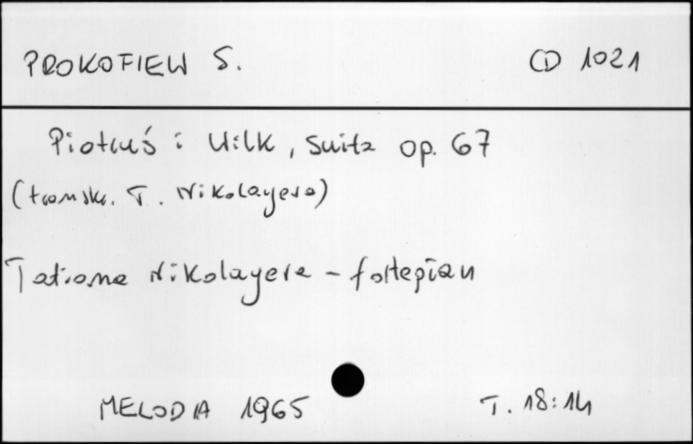 PROKOFIEW S. CD 1021
Piotruś i Wilk, suita op. 67
(transkr. T. Nikolayeva)
Tatiana Nikolayeva - fortepian
MELODIA 1965 T. 18:14